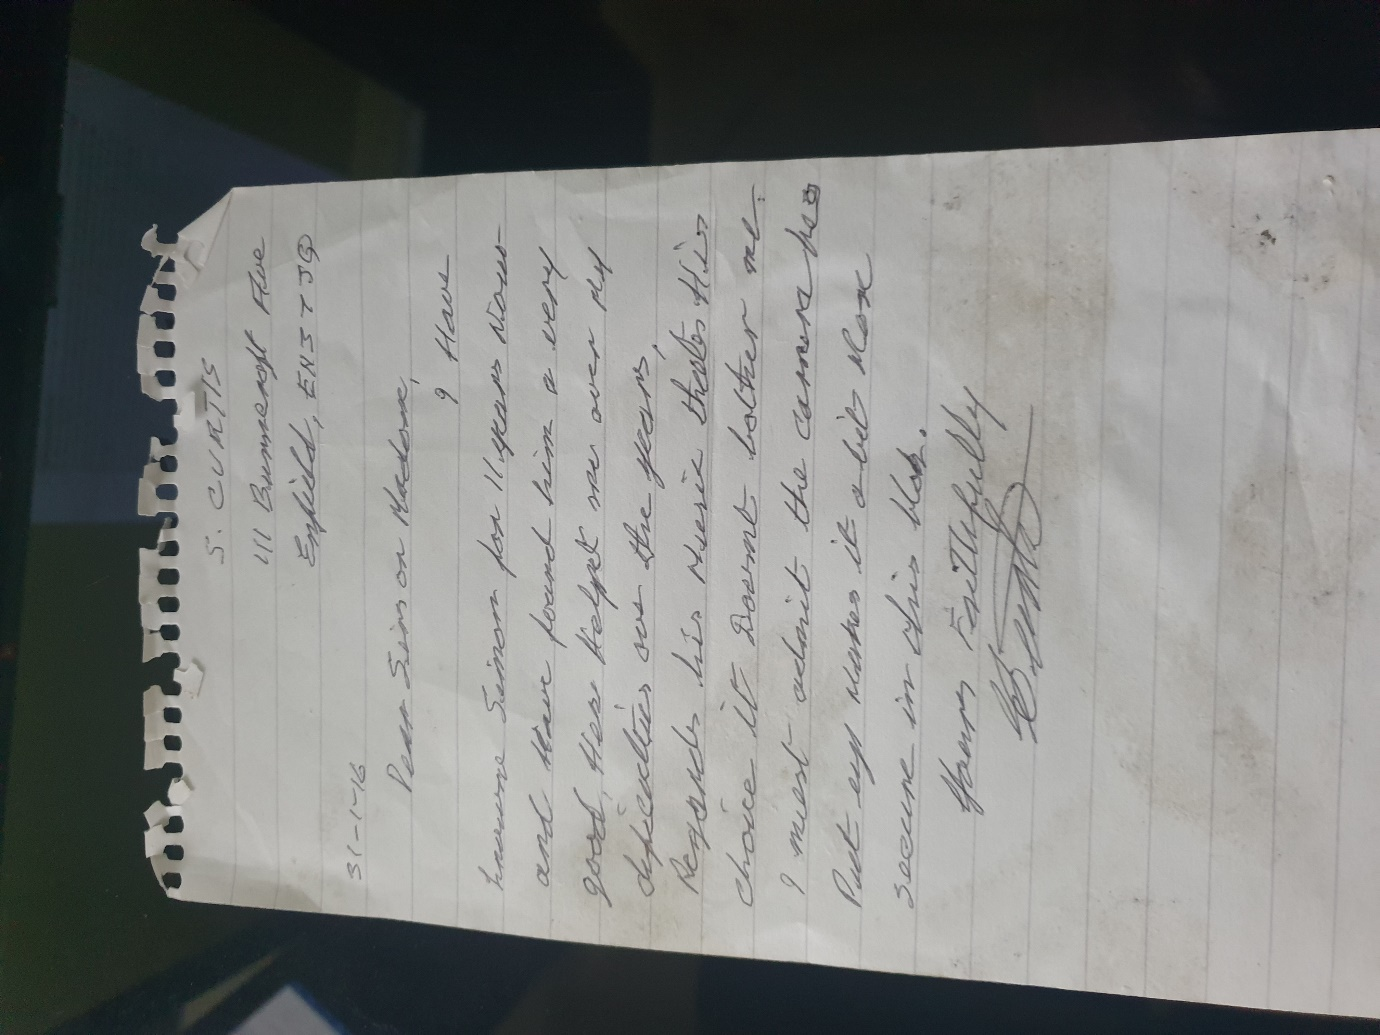 S. CURTIS
111 Bumscroft Ave
Enfield, EN3 7JQ
31-1-16
Dear Sir or Madam,
I Have
knowne Simon for 11 years Now
and Have found him a very
good, Hee Helpt me over my
dificulties ove the years,
Regards his Music thats His
choice it Dosent bother me.
I must admit the camera hes
Put up Makes it a bit Mox
secure in this block.
Yours Faithfully